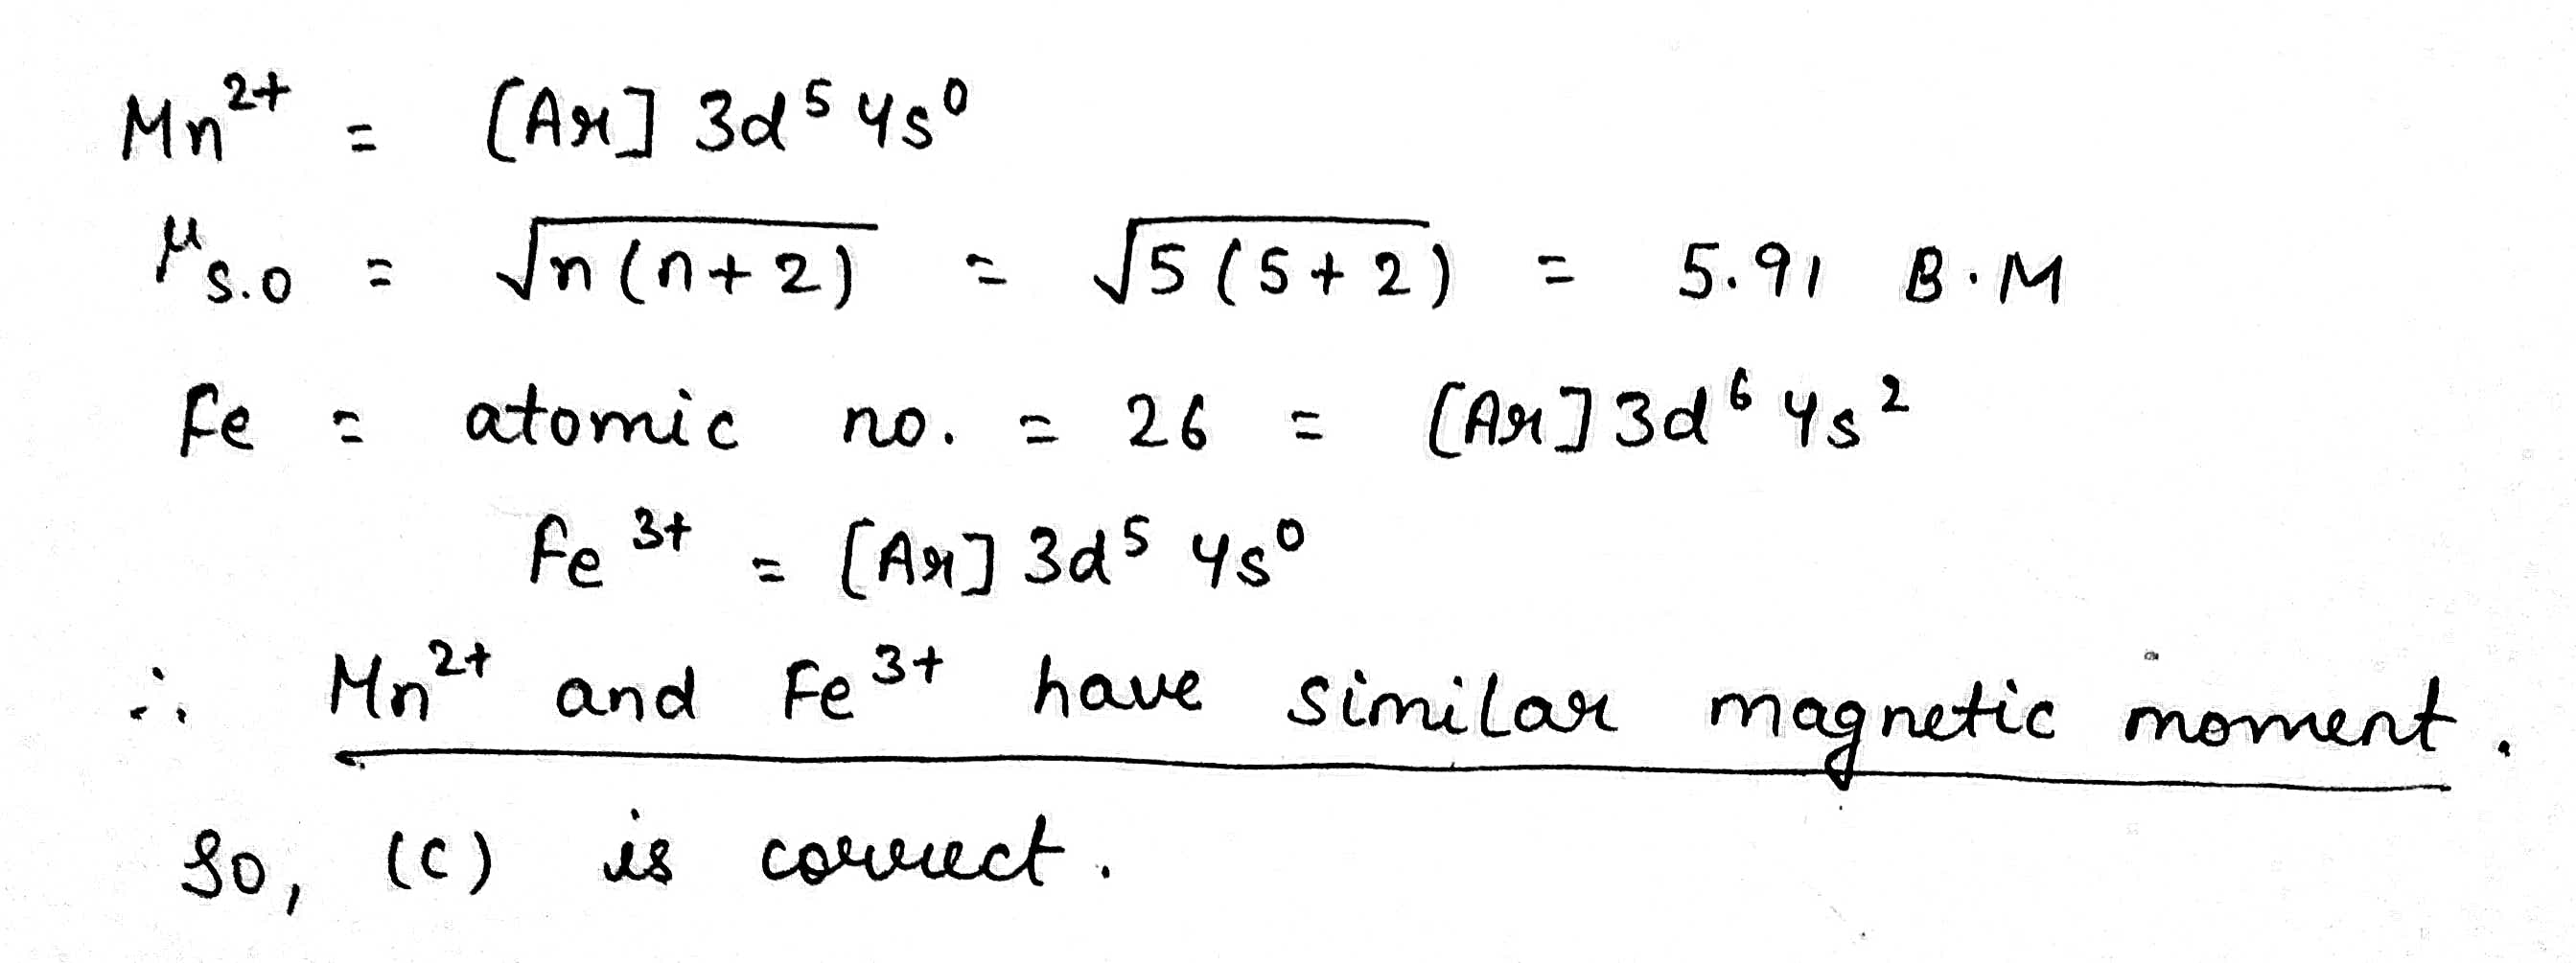 Mn²⁺ = [Ar] 3d⁵ 4s⁰
μs.o = √n(n+2) = √5(5+2) = 5.91 B.M
Fe = atomic no. = 26 = [Ar] 3d⁶ 4s²
Fe³⁺ = [Ar] 3d⁵ 4s⁰
∴ Mn²⁺ and Fe³⁺ have similar magnetic moment.
So, (C) is correct.